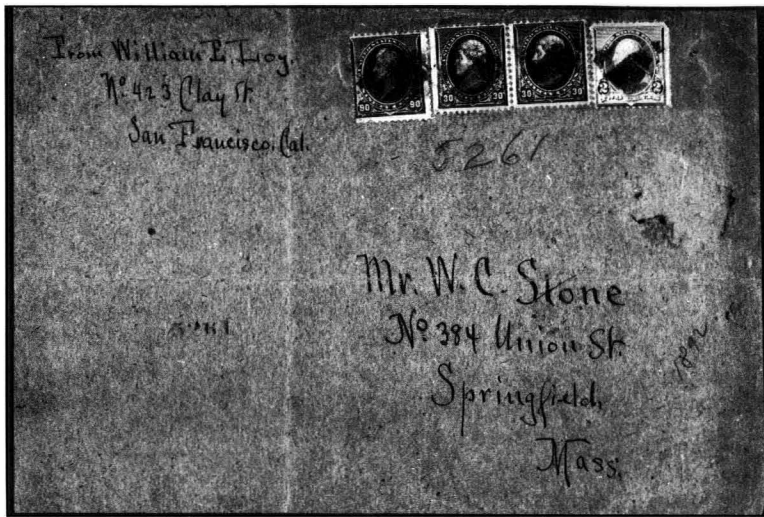 From William E. Loy.
No. 423 Clay St.
San Francisco. Cal.
90 90
30 30
30 30
2 2
5261
Mr. W. C. Stone
No 384 Union St.
Springfield,
Mass.
1892